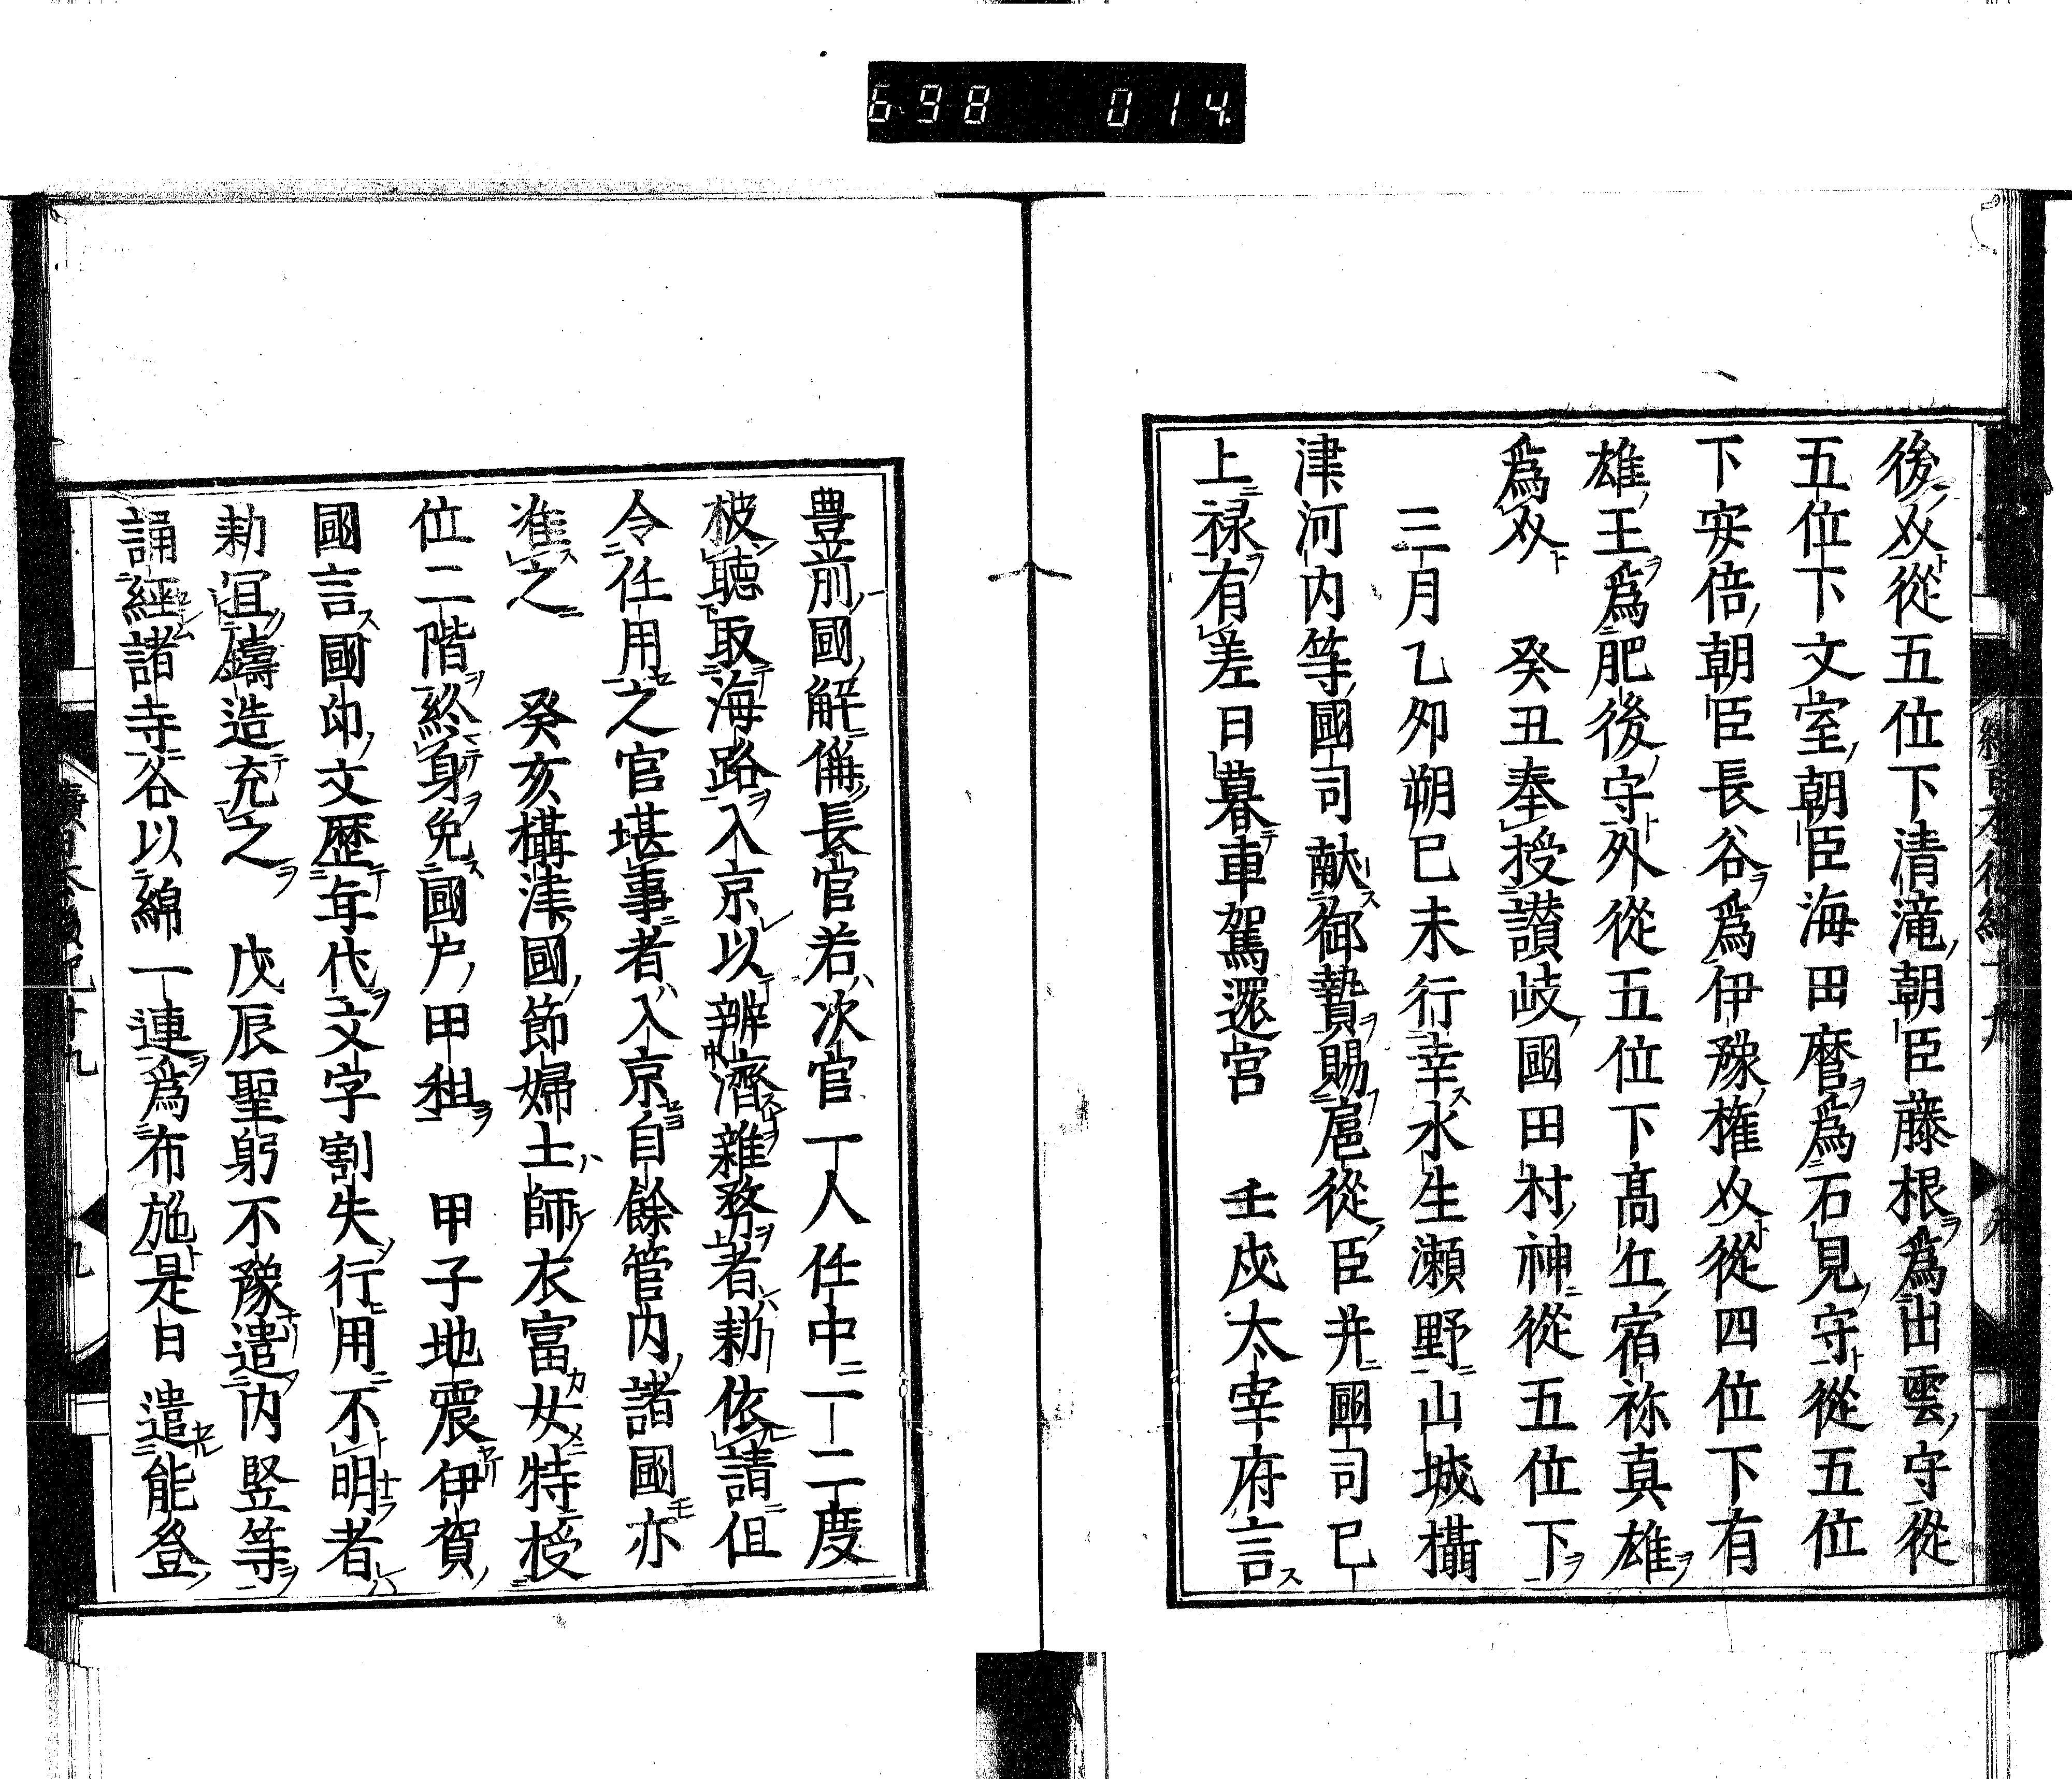 698 014
後介從五位下清滝朝臣藤根爲出雲守從
五位下文室朝臣海田麿爲石見守從五位
下安倍朝臣長谷爲伊豫權介從四位下有
雄王爲肥後守外從五位下髙丘宿祢真雄
爲介 癸丑奉授讃岐國田村神從五位下
三月乙夘朔己未行幸水生瀬野山城攝
津河内等國司献御贄賜扈從臣并國司已
上禄有差日暮車駕還宮 壬戌太宰府言
豊前國解偁長官若次官一人任中一二度
被聴取海路入京以辨濟雜務者勅依請但
令任用之官堪事者入京自餘管内諸國亦
准之 癸亥攝津國節婦土師衣富女特授
位二階終身免國户田租 甲子地震伊賀
國言國印文歴年代文字刓失行用不明者
勅冝鑄造充之 戊辰聖躬不豫遣内竪等
誦經諸寺各以綿一連爲布施是日遣能登